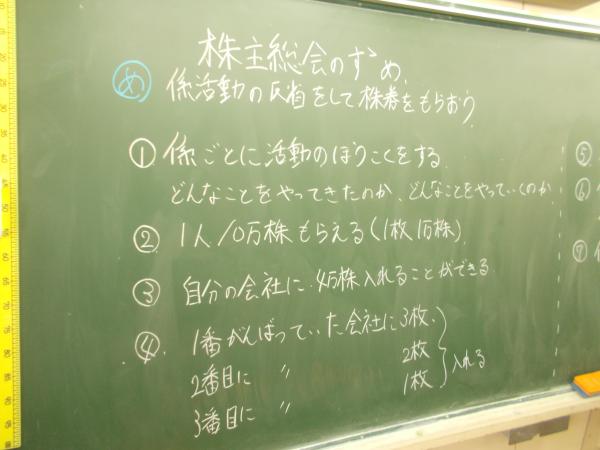 株主総会のすすめ
め 係活動の反省をして株券をもらおう
① 係ごとに活動のほうこくをする
どんなことをやってきたのか、どんなことをやっていくのか
② 1人10万株もらえる(1枚1万株)
③ 自分の会社に、4万株入れることができる
④ 1番がんばっていた会社に3枚、
2番目に 〃 2枚 入れる
3番目に 〃 1枚
⑤
⑥
⑦